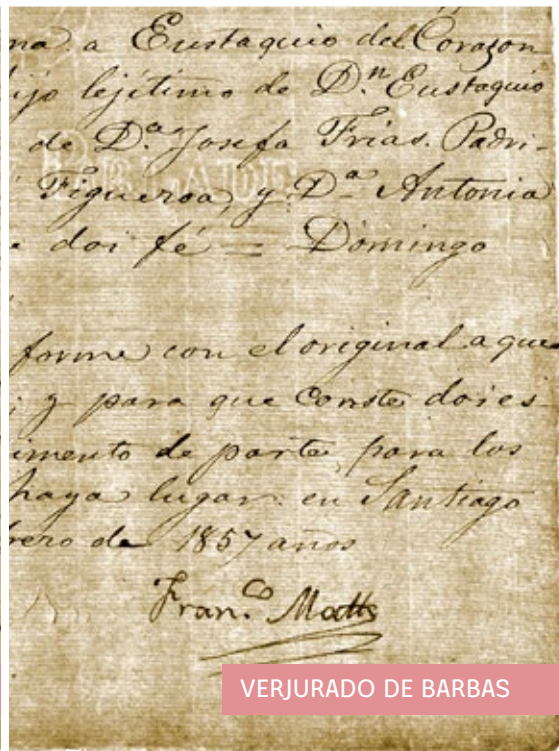 na a Eustaquio del Corazon
ijo lejitimo de D.n Eustaquio
de D.a Josefa Frias. Padri-
Figueroa, y D.a Antonia
e doi fé = Domingo
forme con el original a que
; y para que conste doi es
imento de parte, para los
haya lugar en Santiago
rero de 1857 años
Fran.co
VERJURADO DE BARBAS